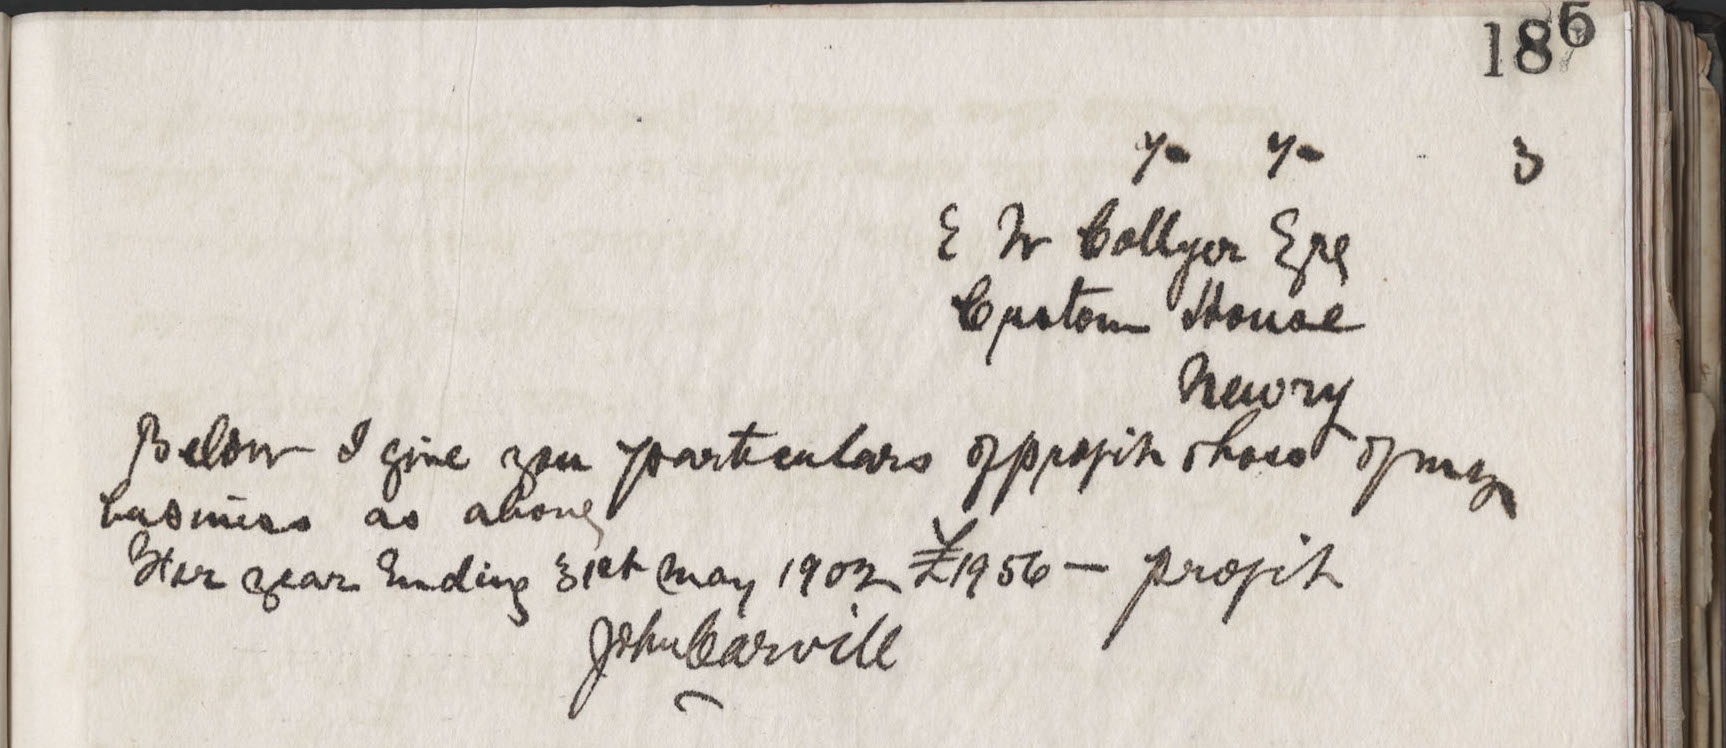 186
7 - 7 - 3
E W Collyer Esq
Custom House
Newry
Below I give you particulars of profit shost of my
business as above
For year Ending 31st May 1902 £1956 - profit
John Carvill